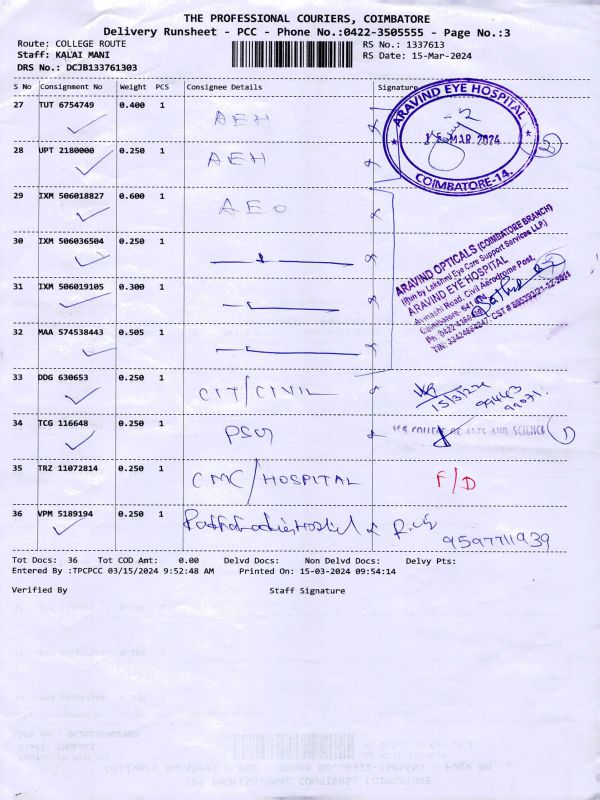 THE PROFESSIONAL COURIERS, COIMBATORE
Delivery Runsheet - PCC - Phone No.:0422-3505555 - Page No.:3
Route: COLLEGE ROUTE RS No.: 1337613
Staff: KALAI MANI RS Date: 15-Mar-2024
DRS No.: DCJB133761303
S No Consignment No Weight PCS Consignee Details Signature
27 TUT 6754749 0.400 1 AEH
ARAVIND EYE HOSPITAL
15 MAR 2024
COIMBATORE-14.
28 UPT 2180000 0.250 1 AEH
29 IXM 506018827 0.600 1 AEO
30 IXM 506036504 0.250 1
ARAVIND OPTICALS (COIMBATORE BRANCH)
(Run by Lakshmi Eye Care Support Services LLP)
ARAVIND EYE HOSPITAL
Avinashi Road, Civil Aerodrome Post,
Coimbatore. 641 014
31 IXM 506019105 0.300 1
32 MAA 574538443 0.505 1
33 DDG 630653 0.250 1 CIT/CIVIL
15/3/24
99443
34 TCG 116648 0.250 1 PSG
PSG COLLEGE OF ARTS AND SCIENCE 1
35 TRZ 11072814 0.250 1 CMC/HOSPITAL F/D
36 VPM 5189194 0.250 1
9597711939
Tot Docs: 36 Tot COD Amt: 0.00 Delvd Docs: Non Delvd Docs: Delvy Pts:
Entered By :TPCPCC 03/15/2024 9:52:48 AM Printed On: 15-03-2024 09:54:14
Verified By Staff Signature